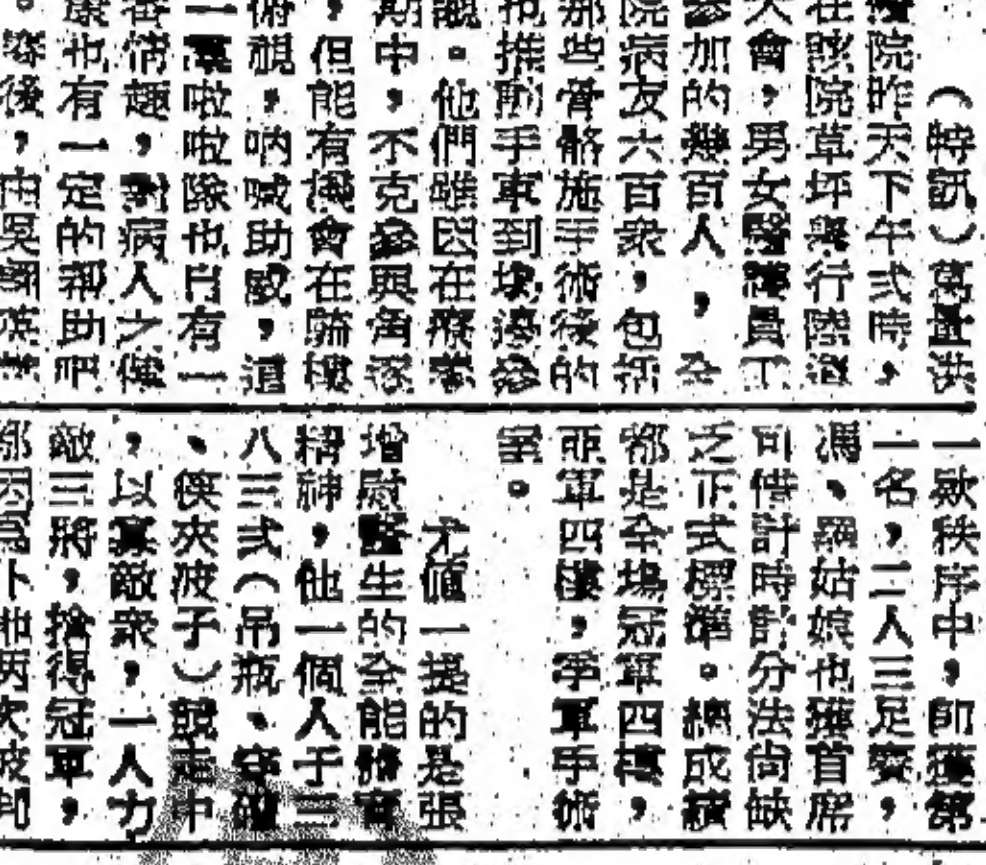 （特訊）萬金洪
院昨天下午弍時，
在該院草坪舉行陸
大會，男女醫護員工
參加的幾百人，全
院病友六百衆，包括
那些骨骼施手術後的
也推動手車到場邊參
觀。他們雖因在療養
期中，不克參與角逐
，但能有機會在騎樓
俯視，吶喊助威，這
一羣啦啦隊也自有一
番情趣，對病人之健
康也有一定的帮助吧
。賽後，由吳
一歘秩序中，師獲第
一名，二人三足賽，
馮、羅姑娘也獲首席
可惜計時計分法尙缺
乏正式標準。總成績
都是全場冠軍四樓，
亞軍四樓，季軍手術
室。
尤値一提的是張
增尉醫生的全能體育
精神，他一個人于三
八三弍（吊瓶、穿
、筷夾波子）競走中
，以寡敵衆，一人力
敵三將，搶得冠軍，
都因爲下地两次被判